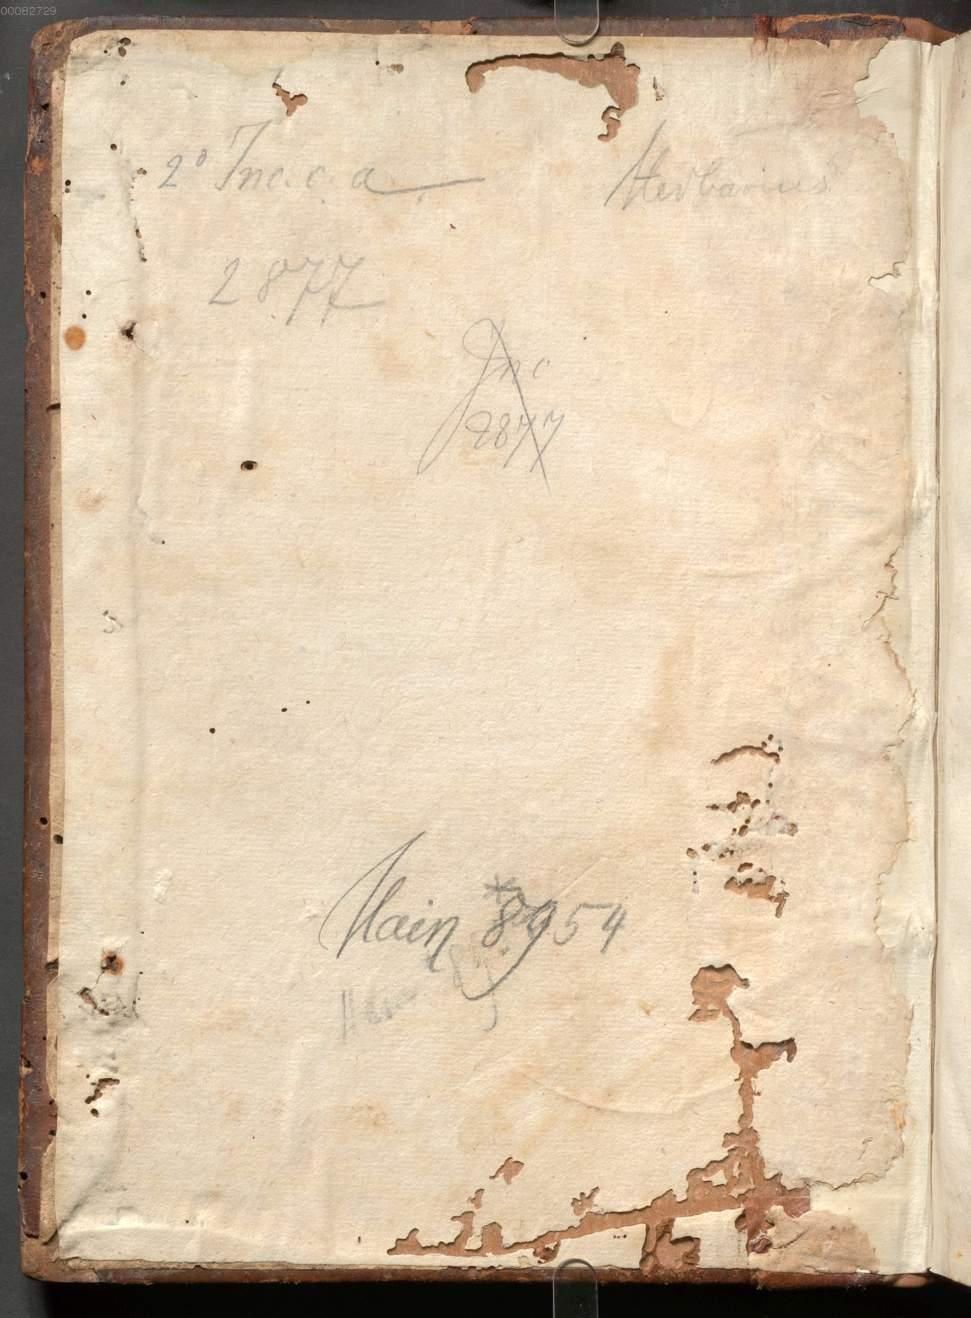 00082729
2° Inc. c. a. Herbarius
2877
Inc
2877
Hain *8954